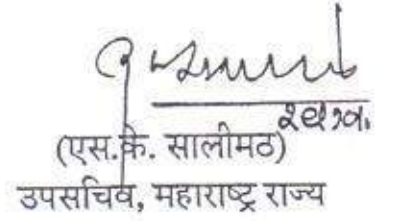 (एस.के. सालीमठ)
उपसचिव, महाराष्ट्र राज्य